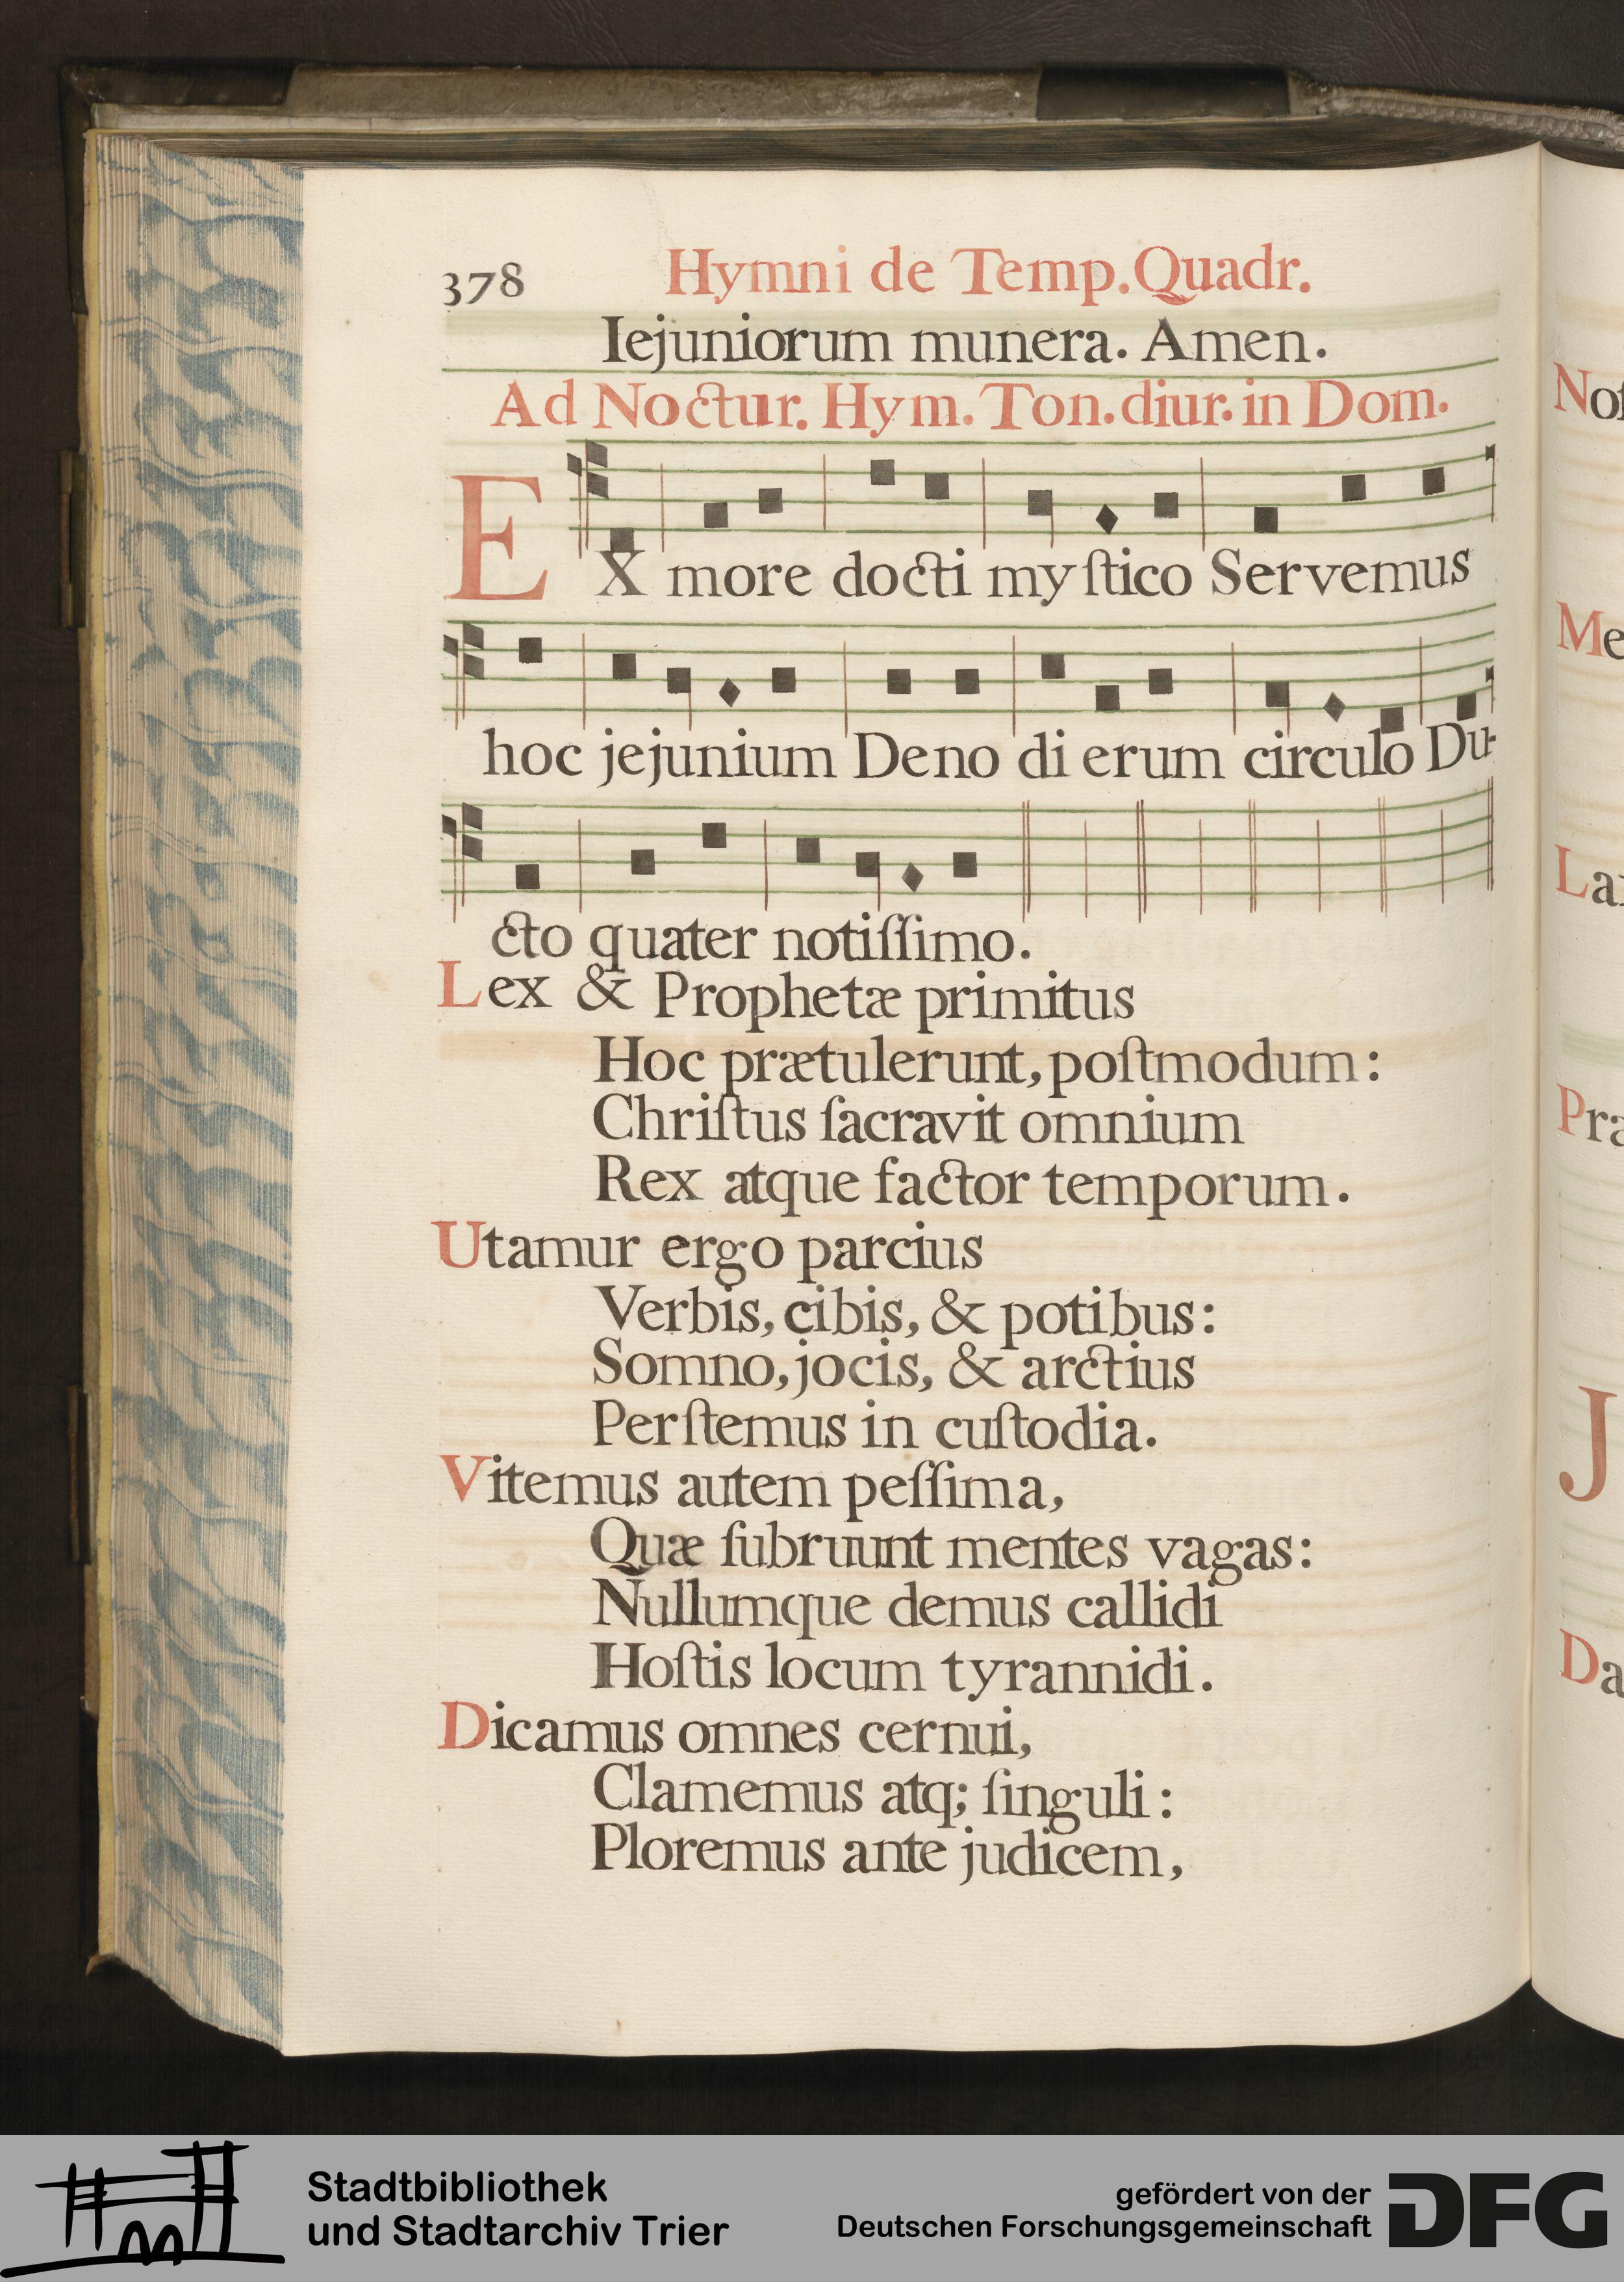 378 Hymni de Temp. Quadr.
Iejuniorum munera. Amen.
Ad Noctur. Hym. Ton. diur. in Dom.
EX more docti myſtico Servemus
hoc jejunium Deno di erum circulo Du-
cto quater notiſſimo.
Lex & Prophetæ primitus
Hoc prætulerunt, poſtmodum:
Chriſtus ſacravit omnium
Rex atque factor temporum.
Utamur ergo parcius
Verbis, cibis, & potibus:
Somno, jocis, & arctius
Perſtemus in cuſtodia.
Vitemus autem peſſima,
Quæ ſubruunt mentes vagas:
Nullumque demus callidi
Hoſtis locum tyrannidi.
Dicamus omnes cernui,
Clamemus atq; ſinguli:
Ploremus ante judicem,
Me
La
Pra
J
Da
Stadtbibliothek
und Stadtarchiv Trier
gefördert von der
Deutschen Forschungsgemeinschaft
DFG